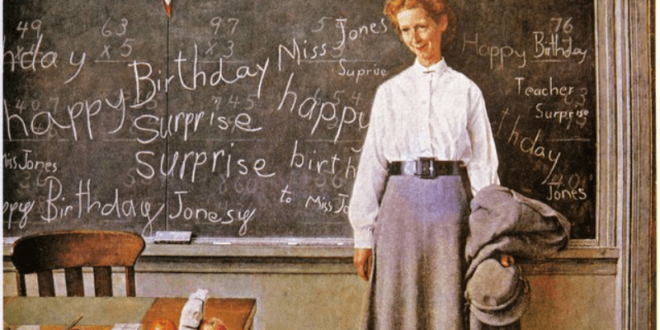 49
63
x 5
97
x 3
76
hday
Birthday
Surprise
Surprise
happy
Miss Jones
Suprise
happy
birth
to Miss J
Happy Birthday
Teacher
Surprise
thday
Jones
iss Jones
ppy Birthday Jonesy